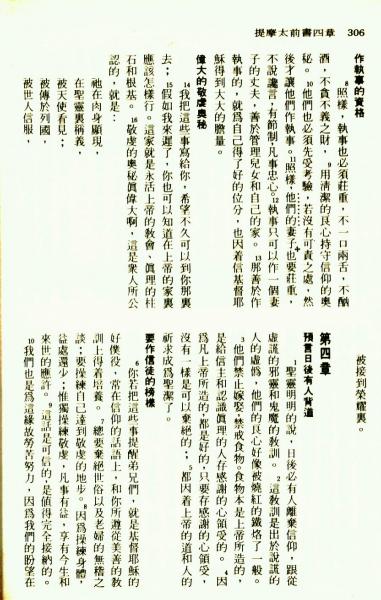 提摩太前書四章 306
作執事的資格
8照樣,執事也必須莊重,不一口兩舌,不酗
酒,不貪不義之財,9用清潔的良心持守信仰的奧
秘。10他們也必須先受考驗,若沒有可責之處,然
後才讓他們作執事。11照樣,他們的妻子+也要莊重,
不說讒言,有節制,凡事忠心。12執事只可以作一個妻
子的丈夫,善於管理兒女和自己的家。13那善於作
執事的,就爲自己得了好的位分,也因着信基督耶
穌得到大大的膽量。
偉大的敬虔奧秘
14我把這些事寫給你,希望不久可以到你那裏
去;15假如我來遲了,你也可以知道在上帝的家裏
應該怎樣行。這家就是永活上帝的教會、眞理的柱
石和根基。16敬虔的奧秘眞偉大啊,這是衆人所公
認的,就是:
祂在肉身顯現,
在聖靈裏稱義,
被天使看見;
被傳於列國,
被世人信服,
被接到榮耀裏。
第四章
預言日後有人背道
1聖靈明明的說,日後必有人離棄信仰,跟從
虛謊的邪靈和鬼魔的教訓。2這教訓是出於說謊的
人的虛僞,他們的良心好像被燒紅的鐵烙了一般。
3他們禁止嫁娶,禁戒食物。食物本是上帝所造的,
是給信主和認識眞理的人存感謝的心領受的。4因
爲凡上帝所造的,都是好的,只要存感謝的心領受,
沒有一樣是可以棄絕的;5都因着上帝的道和人的
祈求成爲聖潔了。
要作信徒的榜樣
6你若把這些事提醒弟兄們,就是基督耶穌的
好僕役,常在信仰的話語上,和你所遵從美善的教
訓上得着培養。7總要棄絕世俗以及老婦的無稽之
談;要操練自己達到敬虔的地步。8因爲操練身體,
益處還少;惟獨操練敬虔,凡事有益,享有今生和
來世的應許。9這話是可信的,是値得完全接納的。
10我們也是爲這緣故勞苦努力,因爲我們的盼望在